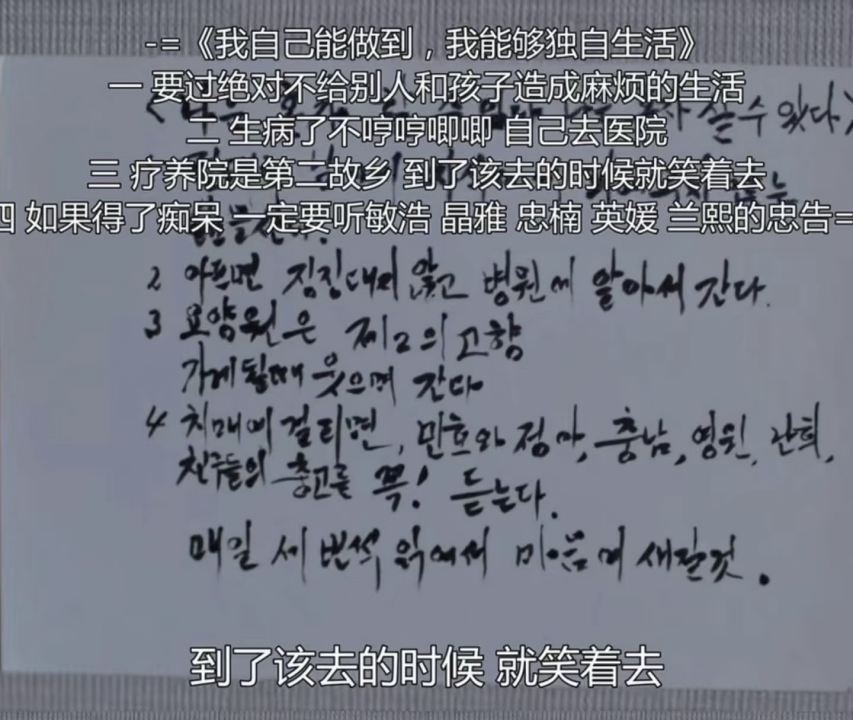 -=《我自己能做到，我能够独自生活》
一 要过绝对不给别人和孩子造成麻烦的生活
살 수 있다>
二 生病了不哼哼唧唧 自己去医院
三 疗养院是第二故乡 到了该去的时候就笑着去
四 如果得了痴呆 一定要听敏浩 晶雅 忠楠 英媛 兰熙的忠告=
2 아프면 징징대지 않고 병원에 알아서 간다.
3 요양원은 제2의 고향
가게될때 웃으며 간다
4 치매에 걸리면, 민호와 정아, 충남, 영원, 난희,
친구들의 충고를 꼭! 듣는다.
매일 세 번씩 읽어서 마음에 새길것.
到了该去的时候 就笑着去